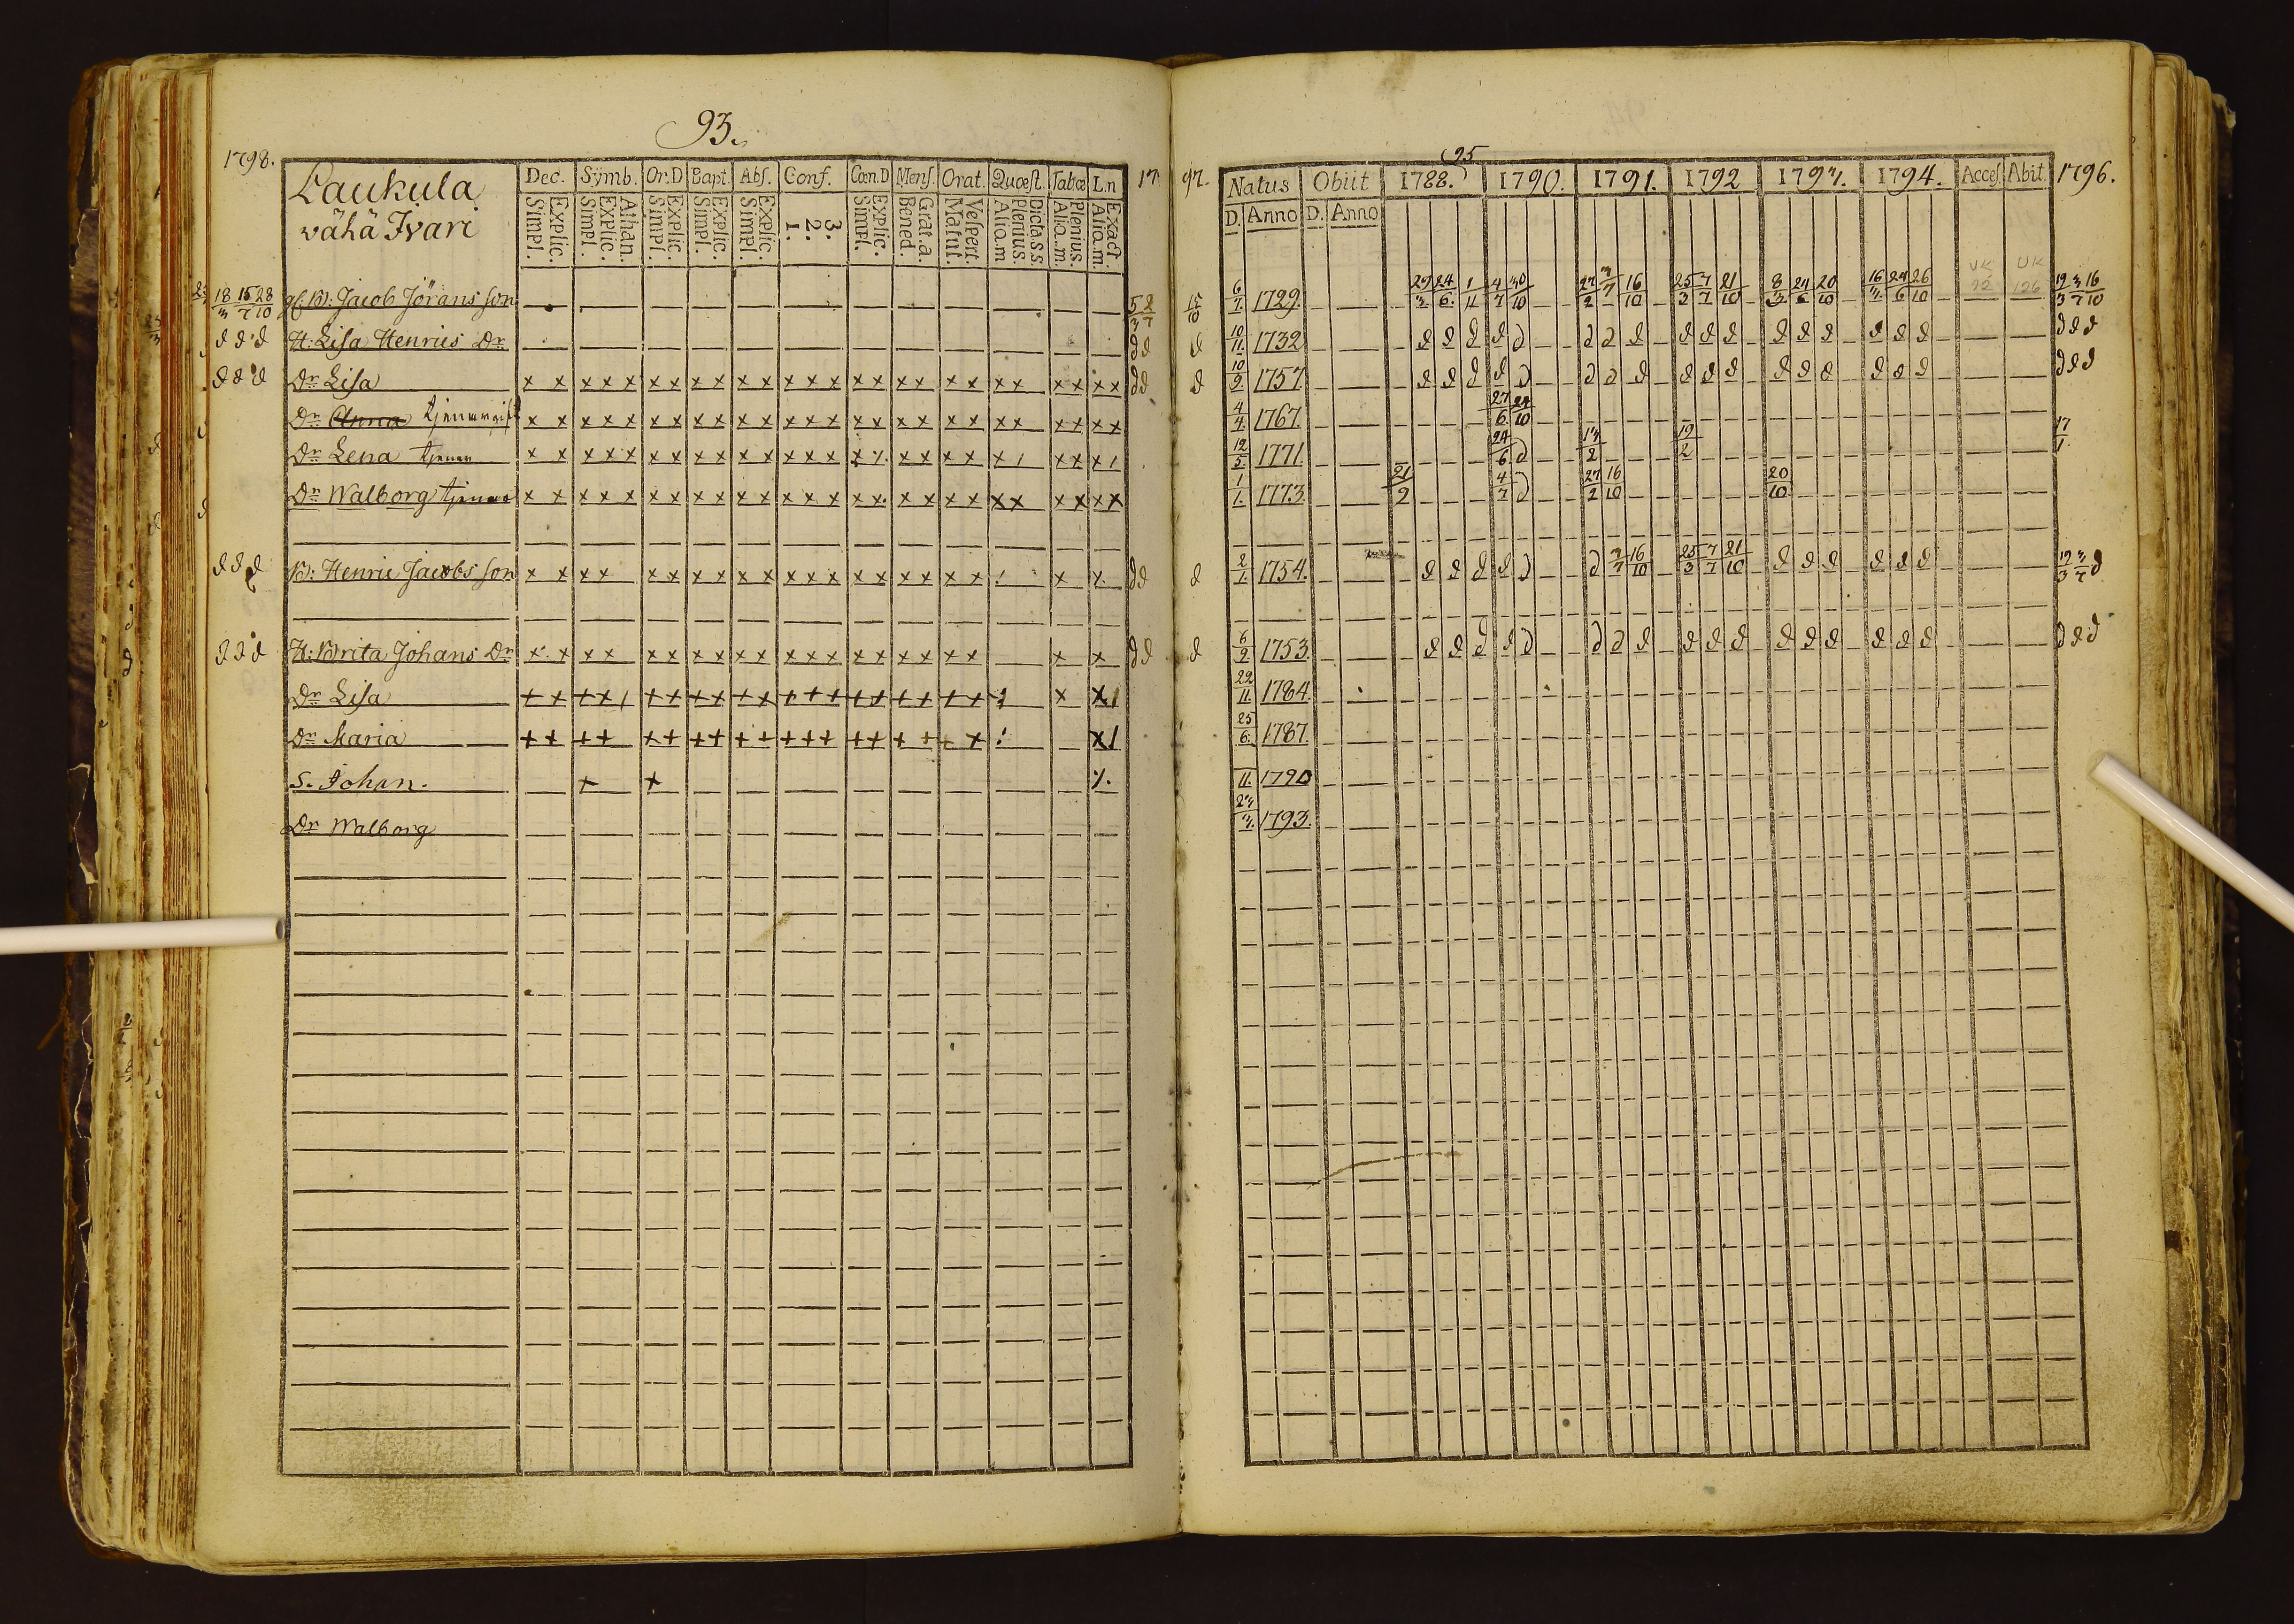 93.
1798.
Laukula
vähä Ivari
Dec. Symb. Or.D Bapt. Abſ. Conf. Cœn.D Menſ. Orat. Quœſt. Tabœ L.n
Explic. Simpl. Athan. Explic. Simpl. Explic. Simpl. Explic. Simpl. Explic. Simpl. 3. 2. 1. Explic. Simpl. Grat.a. Bened. Veſpert. Matut. Dicta.S.S. Plenius. Aliq.m Plenius. Aliq.m. Exact. Aliq.m.
18/3 15/7 28/10 Jacob Jörans ſon 5/3 2/7
d d d H: Liſa Henrics Dr d d
d d d Dr Liſa x x x x x x x x x x x x x x x x x x x x x x x x d d
Dr Anna x x x x x x x x x x x x x x x x x x x x x x x x
Dr Lena tjenar x x x x x x x x x x x x x x x
Dr Walborg tjenar x x x x x x x x x x x x x x x x x x x x x x x x
d d d B: Henric Jacobs ſon x x x x x x x x x x x x x x x x x x x d d
d d d H: Brita Johans Dr x x x x x x x x x x x x x x x x x x x x d d
Dr Liſa + + + x + + + + + + + + + + + + + + + x x
Dr Maria + + + + + + + + + + + + + + + + + + x
S. Johan. + x
Dr Walborg
17 97. 95
Natus Obiit 1788. 1790. 1791. 1792 1793. 1794. Acceſ. Abit. 1796.
D. Anno D. Anno
15/10 6/7. 1729. 29/3 24/6. 1/11 4/7 30/10 27/2 3/7 16/10 25/3 7/7 21/10 8/3 24/6 20/10 16/3. 24/6 26/10 UK 92 UK 126 19/3 3/7 16/10
d 10/11. 1732 d d d d d d d d d d d d d d d d d d d d
d 10/9 1757 d d d d d d d d d d d d d d d d d d d d
4/4 1767. 27/6 24/10
12/5 1771. 24/6. d 13/2 19/2 17/1.
1/1. 1773 21/2 4/7 d 27/2 16/10 20/10
d 2/1. 1754. d d d d d d 3/7 16/10 25/3 7/7 21/10 d d d d d d 19/3 3/7 d
d 6/9 1753. d d d d d d d d d d d d d d d d d d d d
22/11. 1784.
25/6. 1787.
11. 1790
23/3. 1793.